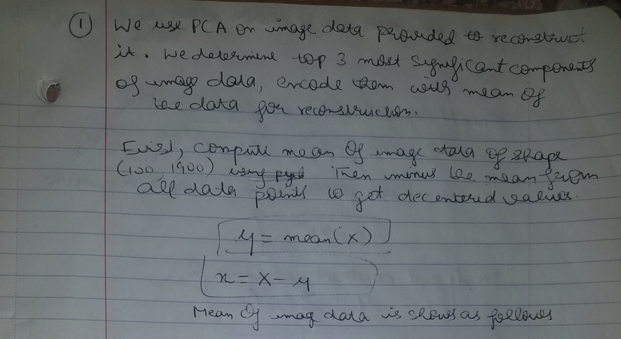 ① We use PCA on image data provided to reconstruct
it. We determine top 3 most significant components
of image data, encode them with mean of
the data for reconstruction.
First, compute mean of image data of shape
(100, 1900) Then minus the mean from
all data points to get decentered values.
y = mean(x)
x = X - y
Mean Of imag data is shows as follows